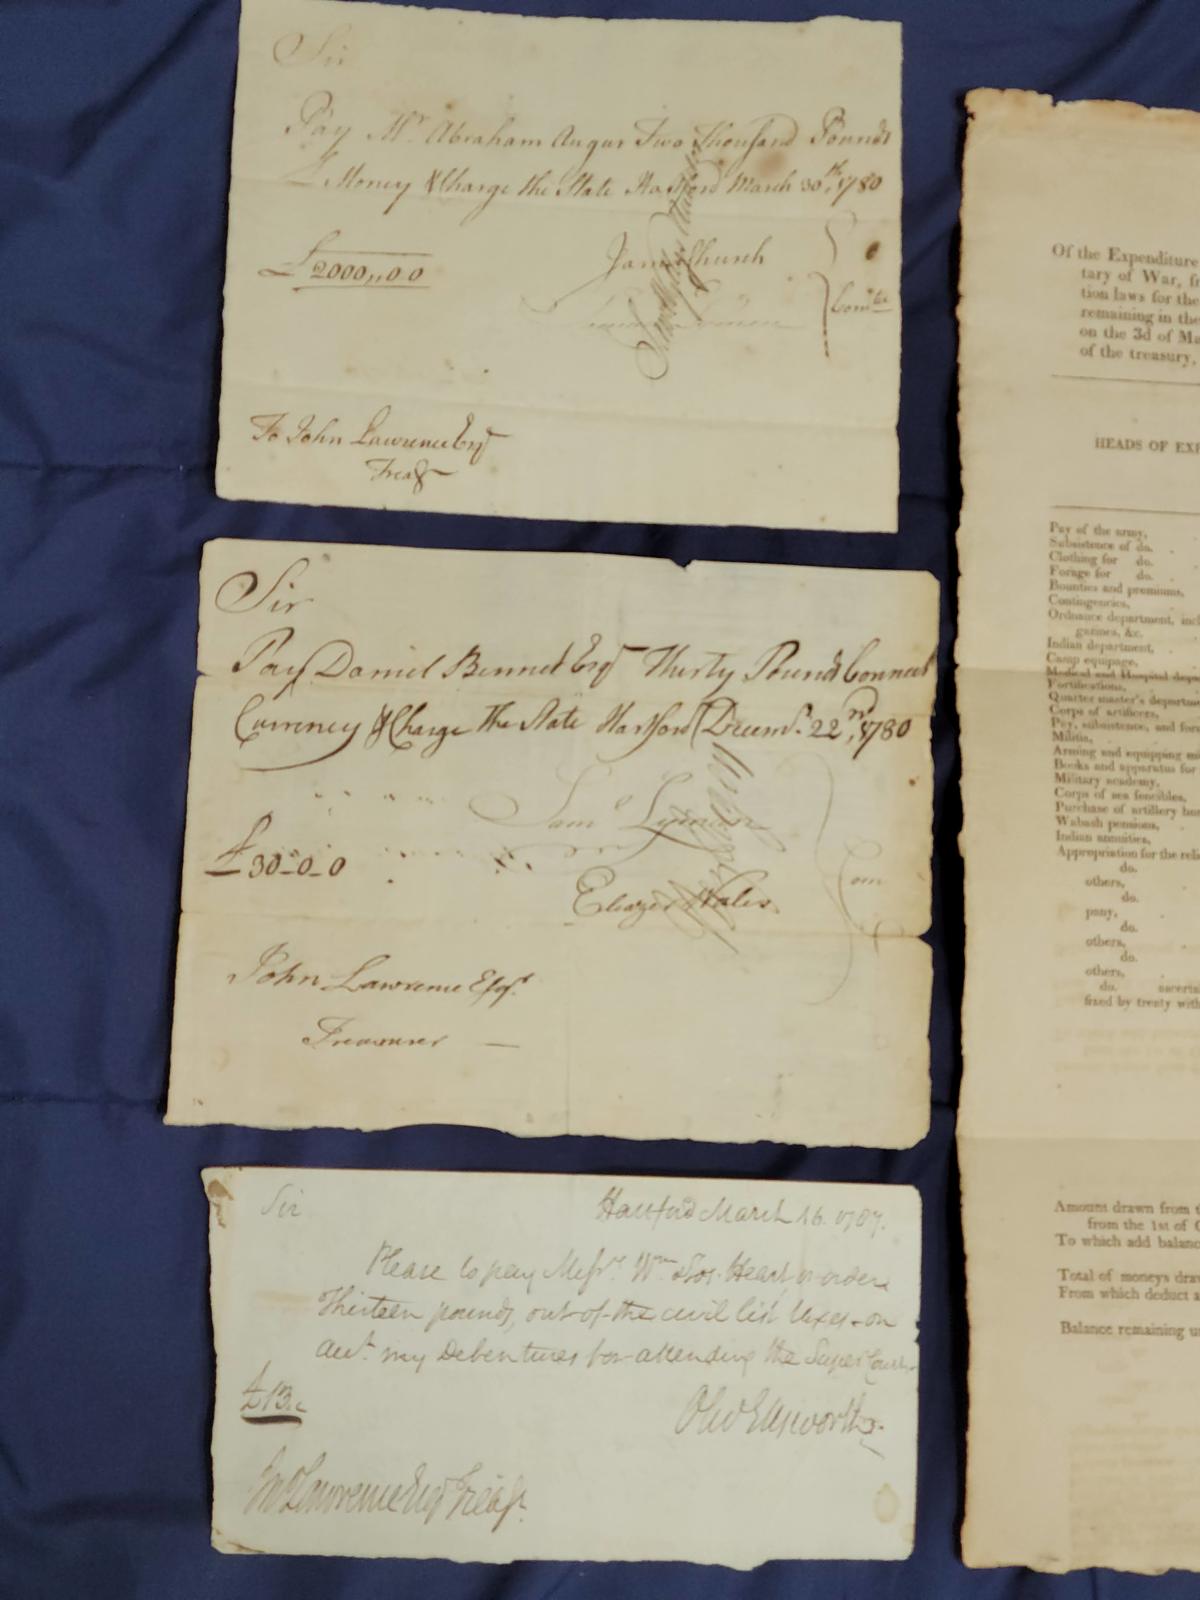 Sir
Pay Mr. Abraham Angus Two Thousand Pounds
L Money & Charge the State Hartford March 30th, 1780
£2000,,0 0
James Church
Comtee
To John Lawrence Esqr
Treasr
Sir
Pay Daniel Bennet Esqr Thirty Pounds Connect
Currency & Charge the State Hartford Decemr. 22nd, 1780
Saml Lyman
£30-0-0
Eleazer Wales
Com
John Lawrence Esqr.
Treasurer
Sir
Hartford March 16. 1787.
Please to pay Messrs. Wm & Jos. Heart, or order
Thirteen pounds, out of the civil list taxes - on
acct. my Debentures for attending the Super Court
£13..
Olivr Ellsworth
Jno Lawrence Esqr Treasr.
Of the Expenditure
tary of War, fr
tion laws for the
remaining in the
on the 3d of Ma
of the treasury,
HEADS OF EXP
Pay of the army,
Subsistence of do.
Clothing for do.
Forage for do.
Bounties and premiums,
Contingencies,
Ordnance department, incl
gazines, &c.
Indian department,
Camp equipage,
Medical and Hospital depa
Fortifications,
Quarter master's departme
Corps of artificers,
Pay, subsistence, and fora
Militia,
Arming and equipping mi
Books and apparatus for
Military academy,
Corps of sea fencibles,
Purchase of artillery hor
Wabash pensions,
Indian annuities,
Appropriation for the reli
do.
others,
do.
pany,
do.
others,
do.
others,
do. ascertai
fixed by treaty with
Amount drawn from t
from the 1st of O
To which add balanc
Total of moneys draw
From which deduct a
Balance remaining u